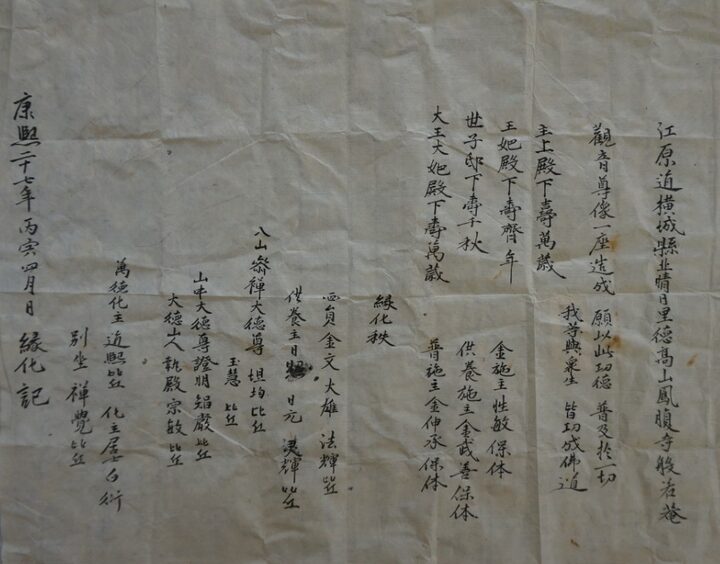 江原道橫城縣韭晴日里德高山鳳腹寺般若菴
觀音尊像一座造成 願以此功德 普及於一切
我等與衆生 皆功成佛道
主上殿下壽萬歲
王妃殿下壽齊年 金施主性敏保体
世子邸下壽千秋 供養施主金武善保体
大王大妃殿下壽萬歲 普施主金伸承保体
緣化秩
金文 大雄 法輝比丘
供養主日 日元 比丘
八山 禪大德尊 坦均比丘
玉慧 比丘
山中大德尊證明 嚴比丘
大德山人執殿宗敏比丘
萬德化主 道熙比丘 化主居士白衍
別坐 禪覺比丘
康熙二十七年丙寅四月日 緣化記